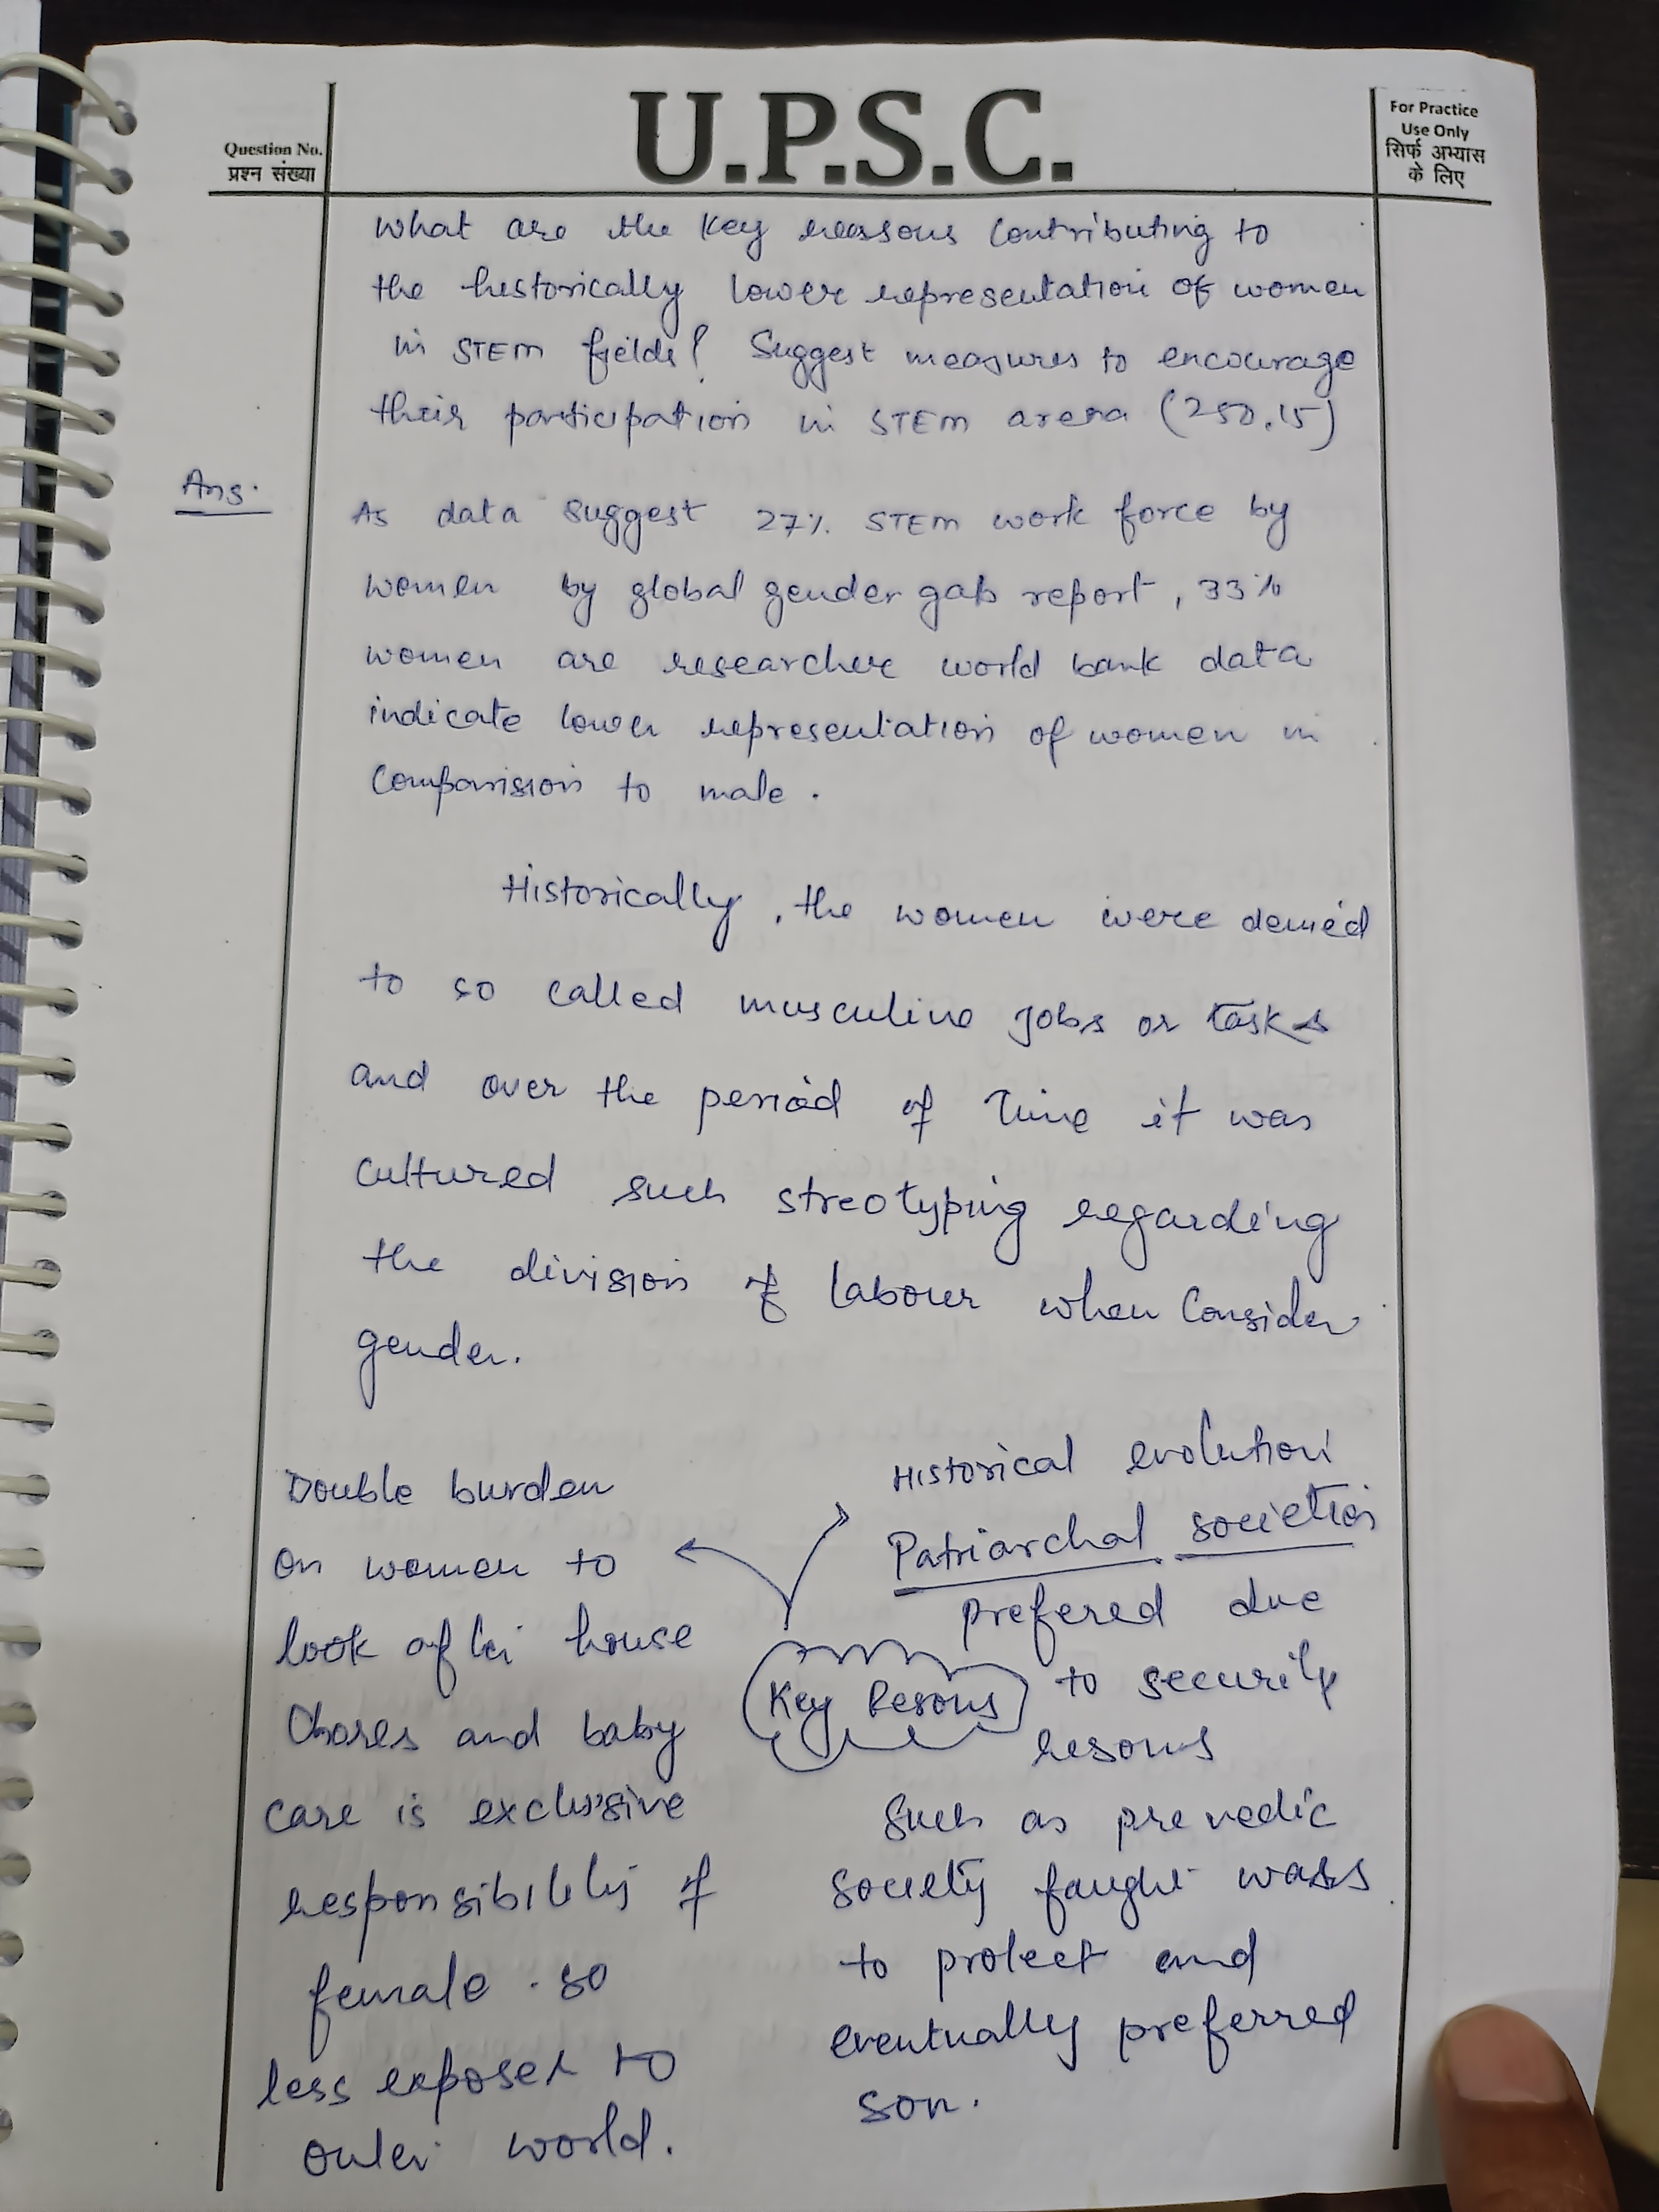 Question No.
प्रश्न संख्या
U.P.S.C.
For Practice
Use Only
सिर्फ अभ्यास
के लिए
What are the key reasons contributing to
the historically lower representation of women
in STEM fields? Suggest measures to encourage
their participation in STEM arena (250,15)
Ans.
As data suggest 27% STEM work force by
women by global gender gap report, 33%
women are researcher world bank data
indicate lower representation of women in
Comparision to male.
Historically, the women were denied
to so called musculine jobs or tasks
and over the period of time it was
cultured such streotyping regarding
the division of labour when consider
gender.
Double burden
on women to
look after house
Chores and baby
care is exclusive
responsibility of
female. so
less exposed to
outer world.
Key Resons
Historical evolution
Patriarchal societies
prefered due
to security
resons
Such as pre vedic
society faught wars
to protect and
eventually preferred
son.